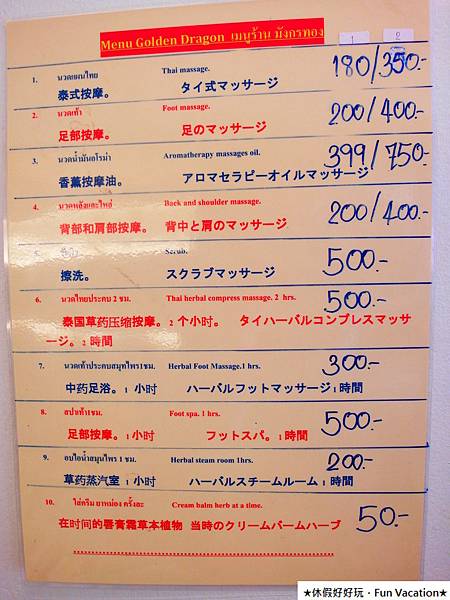 Menu Golden Dragon เมนูร้าน มังกรทอง
1 2
1. นวดแผนไทย Thai massage. 180/350.-
泰式按摩。 タイ式マッサージ
2. นวดเท้า Foot massage. 200/400.-
足部按摩。 足のマッサージ
3. นวดน้ำมันอโรม่า Aromatherapy massages oil. 399/750.-
香薰按摩油。 アロマセラピーオイルマッサージ
4. นวดหลังและไหล่ Back and shoulder massage. 200/400.-
背部和肩部按摩。 背中と肩のマッサージ
5. Scrub. 500.-
擦洗。 スクラブマッサージ
6. นวดไทยประคบ 2 ชม. Thai herbal compress massage. 2 hrs. 500.-
泰国草药压缩按摩。2 个小时。 タイハーバルコンプレスマッサ
ージ。2 時間
7. นวดเท้าประคบสมุนไพร1ชม. Herbal Foot Massage.1 hrs. 300.-
中药足浴。1 小时 ハーバルフットマッサージ1時間
8. สปาเท้า1ชม. Foot spa. 1 hrs. 500.-
足部按摩。1 小时 フットスパ。1時間
9. อบไอน้ำสมุนไพร 1 ชม. Herbal steam room 1hrs. 200.-
草药蒸汽室 1小时 ハーバルスチームルーム 1時間
10. ใส่ครีม ยาหม่อง ครั้งละ Cream balm herb at a time. 50.-
在时间的唇膏霜草本植物 当時のクリームバームハーブ
★休假好好玩‧Fun Vacation★